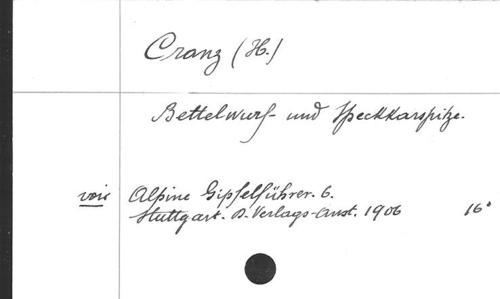 Cranz (H.)
Bettelwurf- und Speckkarspitze.
voir Alpine Gipfelführer. 6.
Stuttgart. D. Verlags-Anst. 1906 16°